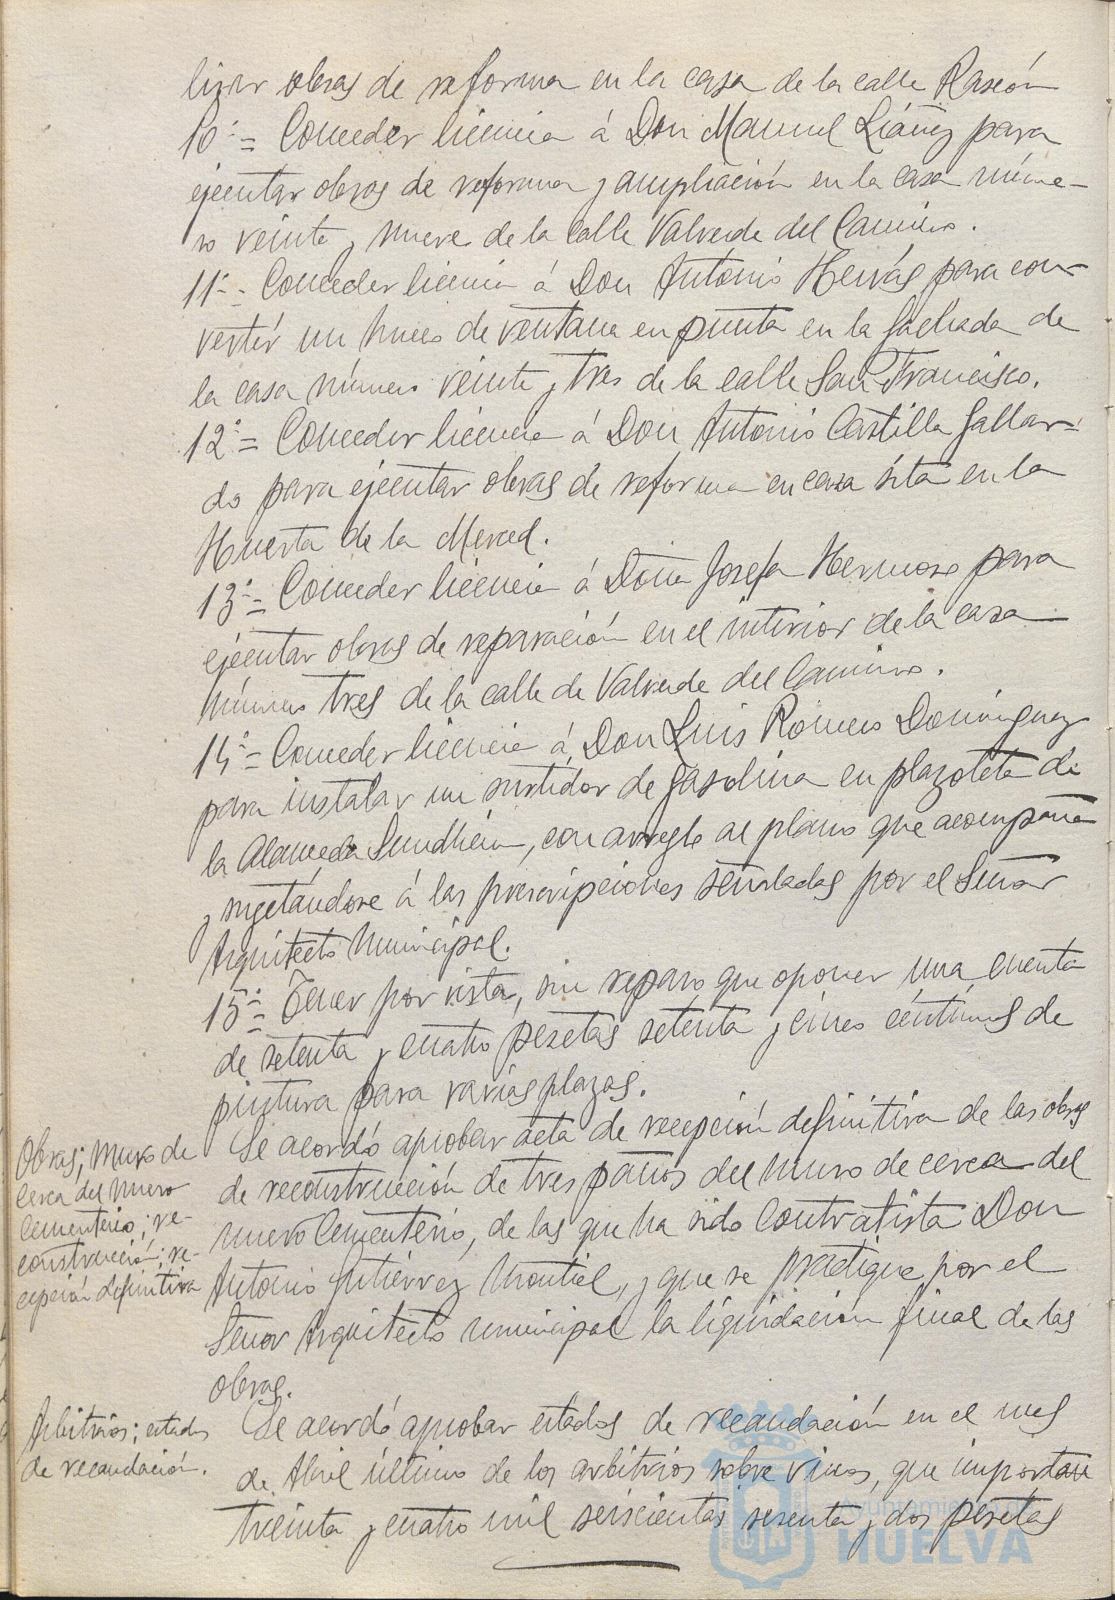 lizar obras de reforma en la casa de la calle Rascón
10º = Conceder licencia á Don Manuel Liáñez para
ejecutar obras de reforma y ampliación en la casa núme-
ro veinte y nueve de la calle Valverde del Camino.
11º = Conceder licencia á Don Antonio Hervás para con-
vertir un hueco de ventana en puerta en la fachada de
la casa número veinte y tres de la calle San Francisco.
12º = Conceder licencia á Don Antonio Castilla Gallar-
do para ejecutar obras de reforma en casa sita en la
Huerta de la Merced.
13º = Conceder licencia á Doña Josefa Hermoso para
ejecutar obras de reparación en el interior de la casa
número tres de la calle de Valverde del Camino.
14º = Conceder licencia á Don Luis Romero Dominguez
para instalar un surtidor de gasolina en plazoleta de
la Alameda Sundheim, con arreglo al plano que acompaña
y sugetándose á las prescripciones señaladas por el Señor
Arquitecto Municipal.
15º = Tener por vista, sin reparo que oponer una cuenta
de setenta y cuatro pesetas setenta y cinco céntimos de
pintura para varias plazas.
Obras; muro de
cerca del nuevo
cementerio; re-
construcción; re-
cepción definitiva
Se acordó aprobar acta de recepción definitiva de las obras
de reconstrucción de tres paños del muro de cerca del
nuevo Cementerio, de las que ha sido contratista Don
Antonio Gutiérrez Montiel, y que se practique por el
Señor Arquitecto municipal la liquidación final de las
obras.
Arbitrios; estados
de recaudación.
Se acordó aprobar estados de recaudación en el mes
de Abril último de los arbitrios sobre vinos, que importan
treinta y cuatro mil seiscientas sesenta y dos pesetas
Ayuntamiento de
HUELVA